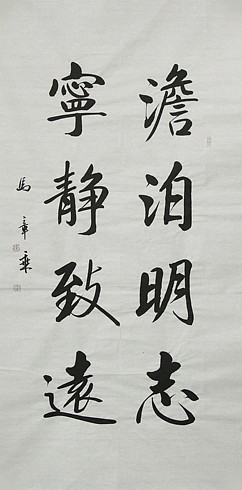 澹泊明志
寧静致遠
馬章乘